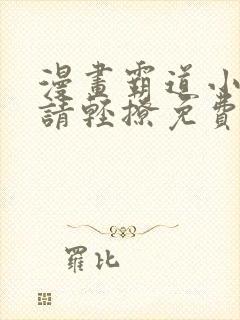 漫畫霸道小
請輕撩免費
羅比